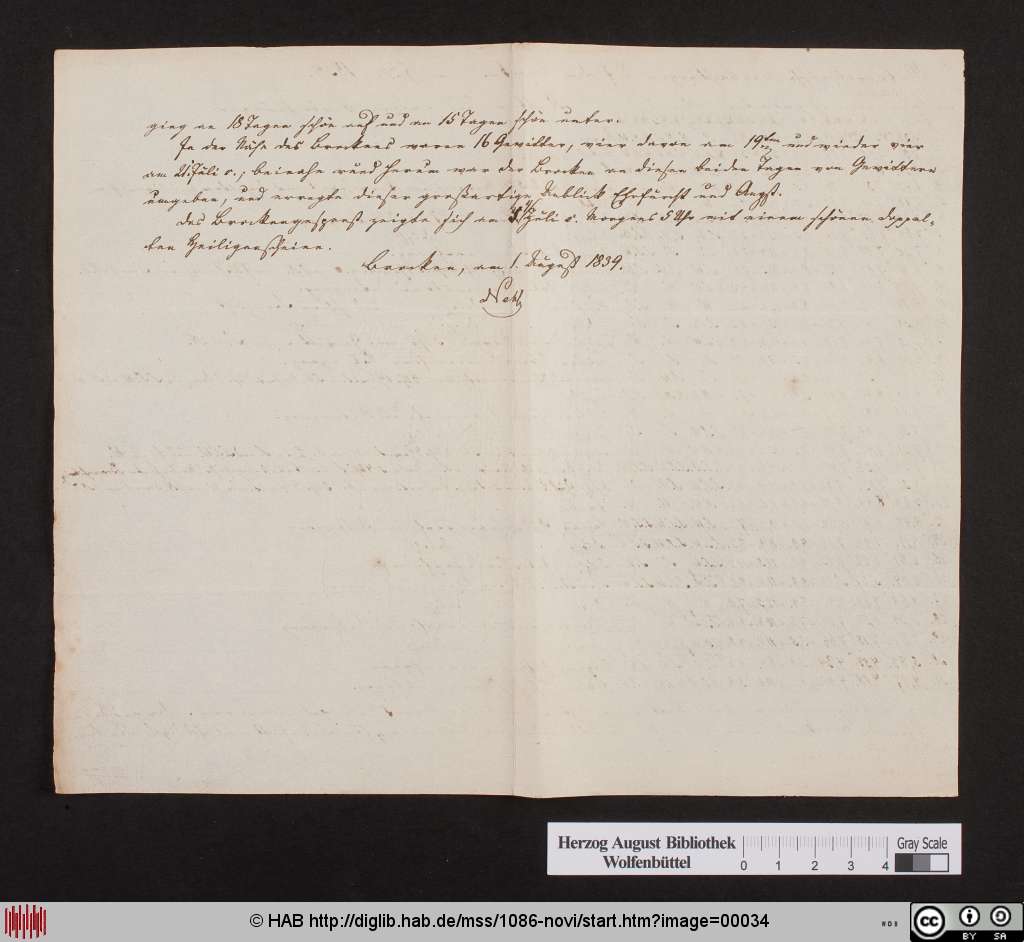 ging an 18 Tagen schön auf und an 15 Tagen schön unter.
In der Nähe des Brockens waren 16 Gewitter, vier davon am 19ten und wieder vier
am 21. Juli c., beinahe rund herum war der Brocken an diesen beiden Tagen von Gewittern
umgeben, und erregte dieser großartige Anblick Ehrfurcht und Angst.
Das Brockengespenst zeigte sich am Juli c. Morgens 5 Uhr mit einem schönen doppel-
ten Heiligenscheine.
Brocken, am 1. August 1839.
Nehse
Herzog August Bibliothek
Wolfenbüttel
0 1 2 3 4
Gray Scale
© HAB http://diglib.hab.de/mss/1086-novi/start.htm?image=00034
cc BY SA